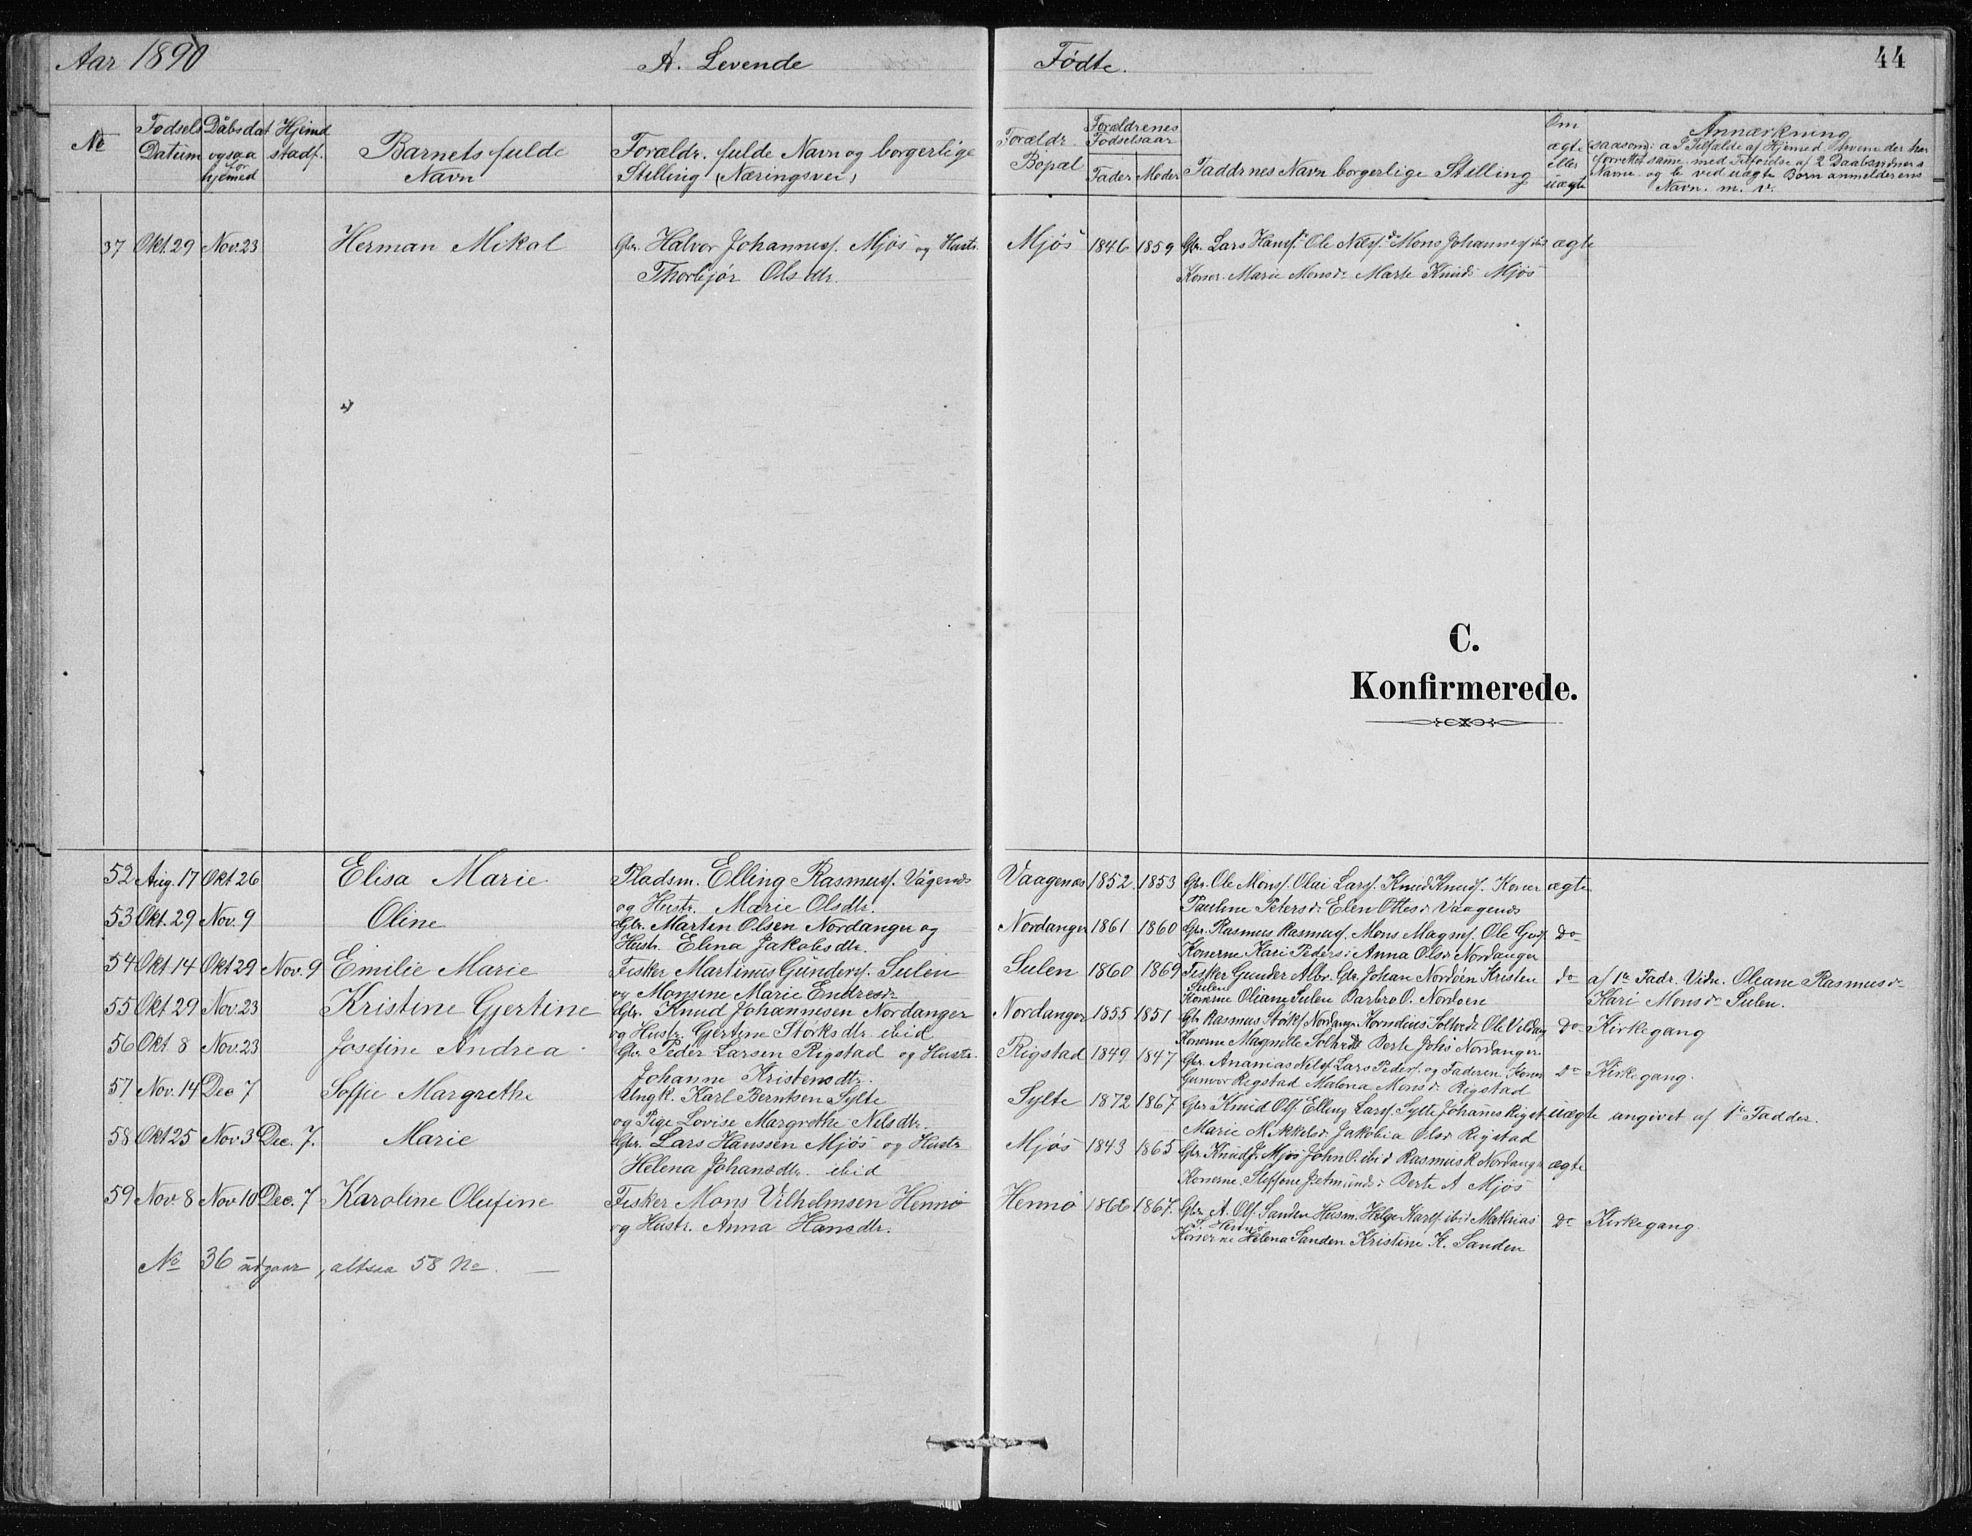 Aar 1890
A. Levende Fødte. 44
No
Fødsels Datum
Dåbsdat ogsaa for hjemed
Hjemd stadf.
Barnets fulde Navn
Foræld. fulde Navn og borgerlige Stilling (Næringsvei)
Foræld. Bopæl
Forældrenes Fødselsaar
Fader Moder
Faddrnes Navn borgerlige Stilling
Om ægte eller uægte
Annærkning
saasom: a I Tilfælde af Hjemed. Navne der har
forrettet samme med Tilføielse af 2 Daabsvidners
Navne og b ved uægte Børn anmelderens
Navn. m. v.
37 Okt 29 Nov. 23 Herman Mikal Gbr. Halvor Johannesf. Mjøs og Hustr. Mjøs 1846 1859 Gbr. Lars Hansf. Ole Nilsf. Mons Johannesf. ibid ægte
Thorbjør Olsdtr. Koner. Marie Monsd. Marte Knuds Mjøs
C.
Konfirmerede.
52 Aug. 17 Okt 26 Elisa Marie Pladsm. Elling Rasmusf. Vågenes Vaagenes 1852 1853 Gbr. Ole Monsf. Olai Larsf. Knud Knudsf. Koner ægte
og Hustr. Marie Olsdtr. Pauline Petersd. Elen Ottesd. Vaagenes
53 Okt. 29 Nov. 9 Oline Gbr. Martin Olsen Nordanger og Nordanger 1861 1860 Gbr. Rasmus Rasmusf. Mons Magnsf. Ole do
Hustr. Elina Jakobsdtr. Konerne Kari Peders. Anna Olsd. Nordanger
54 Okt 14 Okt 29 Nov. 9 Emilie Marie Fisker Martinus Gundersf. Sulen Sulen 1860 1869 Fisker Gunder Albr. Gbr. Johan Nordøn Kristen do af 1e Fadr. Vidn. Oliane Rasmusd.
og Monsine Marie Endresd. Sulen Konerne Oliane Sulen Barbro O. Nordøen Kari Monsd. Sulen.
55 Okt 29 Nov. 23 Kristine Gjertine Gbr. Knud Johannesen Nordanger Nordanger 1855 1851 Gbr. Rasmus Størksf. Nordanger Kornelius Ole do Kirkegang
og Hustr. Gjertine Størksdtr. ibid Konerne Magnille Berte Johs Nordanger.
56 Okt 8 Nov. 23 Josefine Andrea Gbr. Peder Larsen Rigstad og Hustr. Rigstad 1849 1847 Gbr. Ananias Nilsf. Lars Pedersf. og Faderen. Koner do Kirkegang.
Johanne Kristensdtr. Gunvor Rigstad Malena Monsd. Rigstad
57 Nov. 14 Dec 7 Soffie Margrethe Ungk. Karl Berntsen Sylte Sylte 1872 1867 Gbr. Knud Olsf. Elling Larsf. Sylte Johannes Rigst. uægte angivet af 1e Fadder.
og Pige Lovise Margrethe Nilsdtr. Marie Mikkelsd. Jakobia Olsd. Rigstad
58 Okt 25 Nov 3 Dec. 7. Marie Gbr. Lars Hanssen Mjøs og Hustr. Mjøs 1843 1865 Gbr. Knud J. Mjøs John P. ibid Rasmus R. Nordanger ægte
Helena Johansdtr. ibid Konerne Steffine Berte A Mjøs
59 Nov. 8 Nov 10 Dec. 7 Karoline Olufine Fisker Mons Vilhelmsen Hennø Hennø 1867. Gbr. A. Olsf. Sanden Husm. Helge Karlsf. ibid Mathias do Kirkegang.
og Hustr. Anna Hansdtr. S. Hennø Konerne Helena Sanden Kristine K. Sanden
No 36 udgaar, altsaa 58 No.